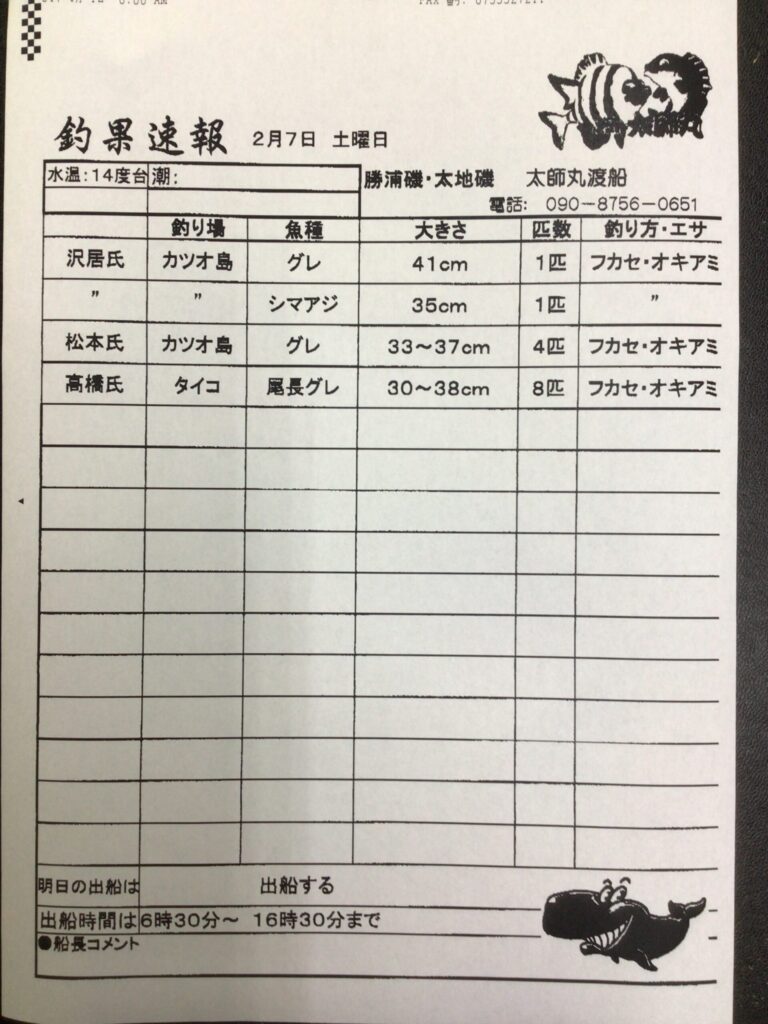 釣果速報 2月7日 土曜日
水温:14度台 潮: 勝浦磯・太地磯 太師丸渡船
電話: 090-8756-0651
釣り場 魚種 大きさ 匹数 釣り方・エサ
沢居氏 カツオ島 グレ 41cm 1匹 フカセ・オキアミ
〃 〃 シマアジ 35cm 1匹 〃
松本氏 カツオ島 グレ 33～37cm 4匹 フカセ・オキアミ
高橋氏 タイコ 尾長グレ 30～38cm 8匹 フカセ・オキアミ
明日の出船は 出船する
出船時間は 6時30分～ 16時30分まで
●船長コメント